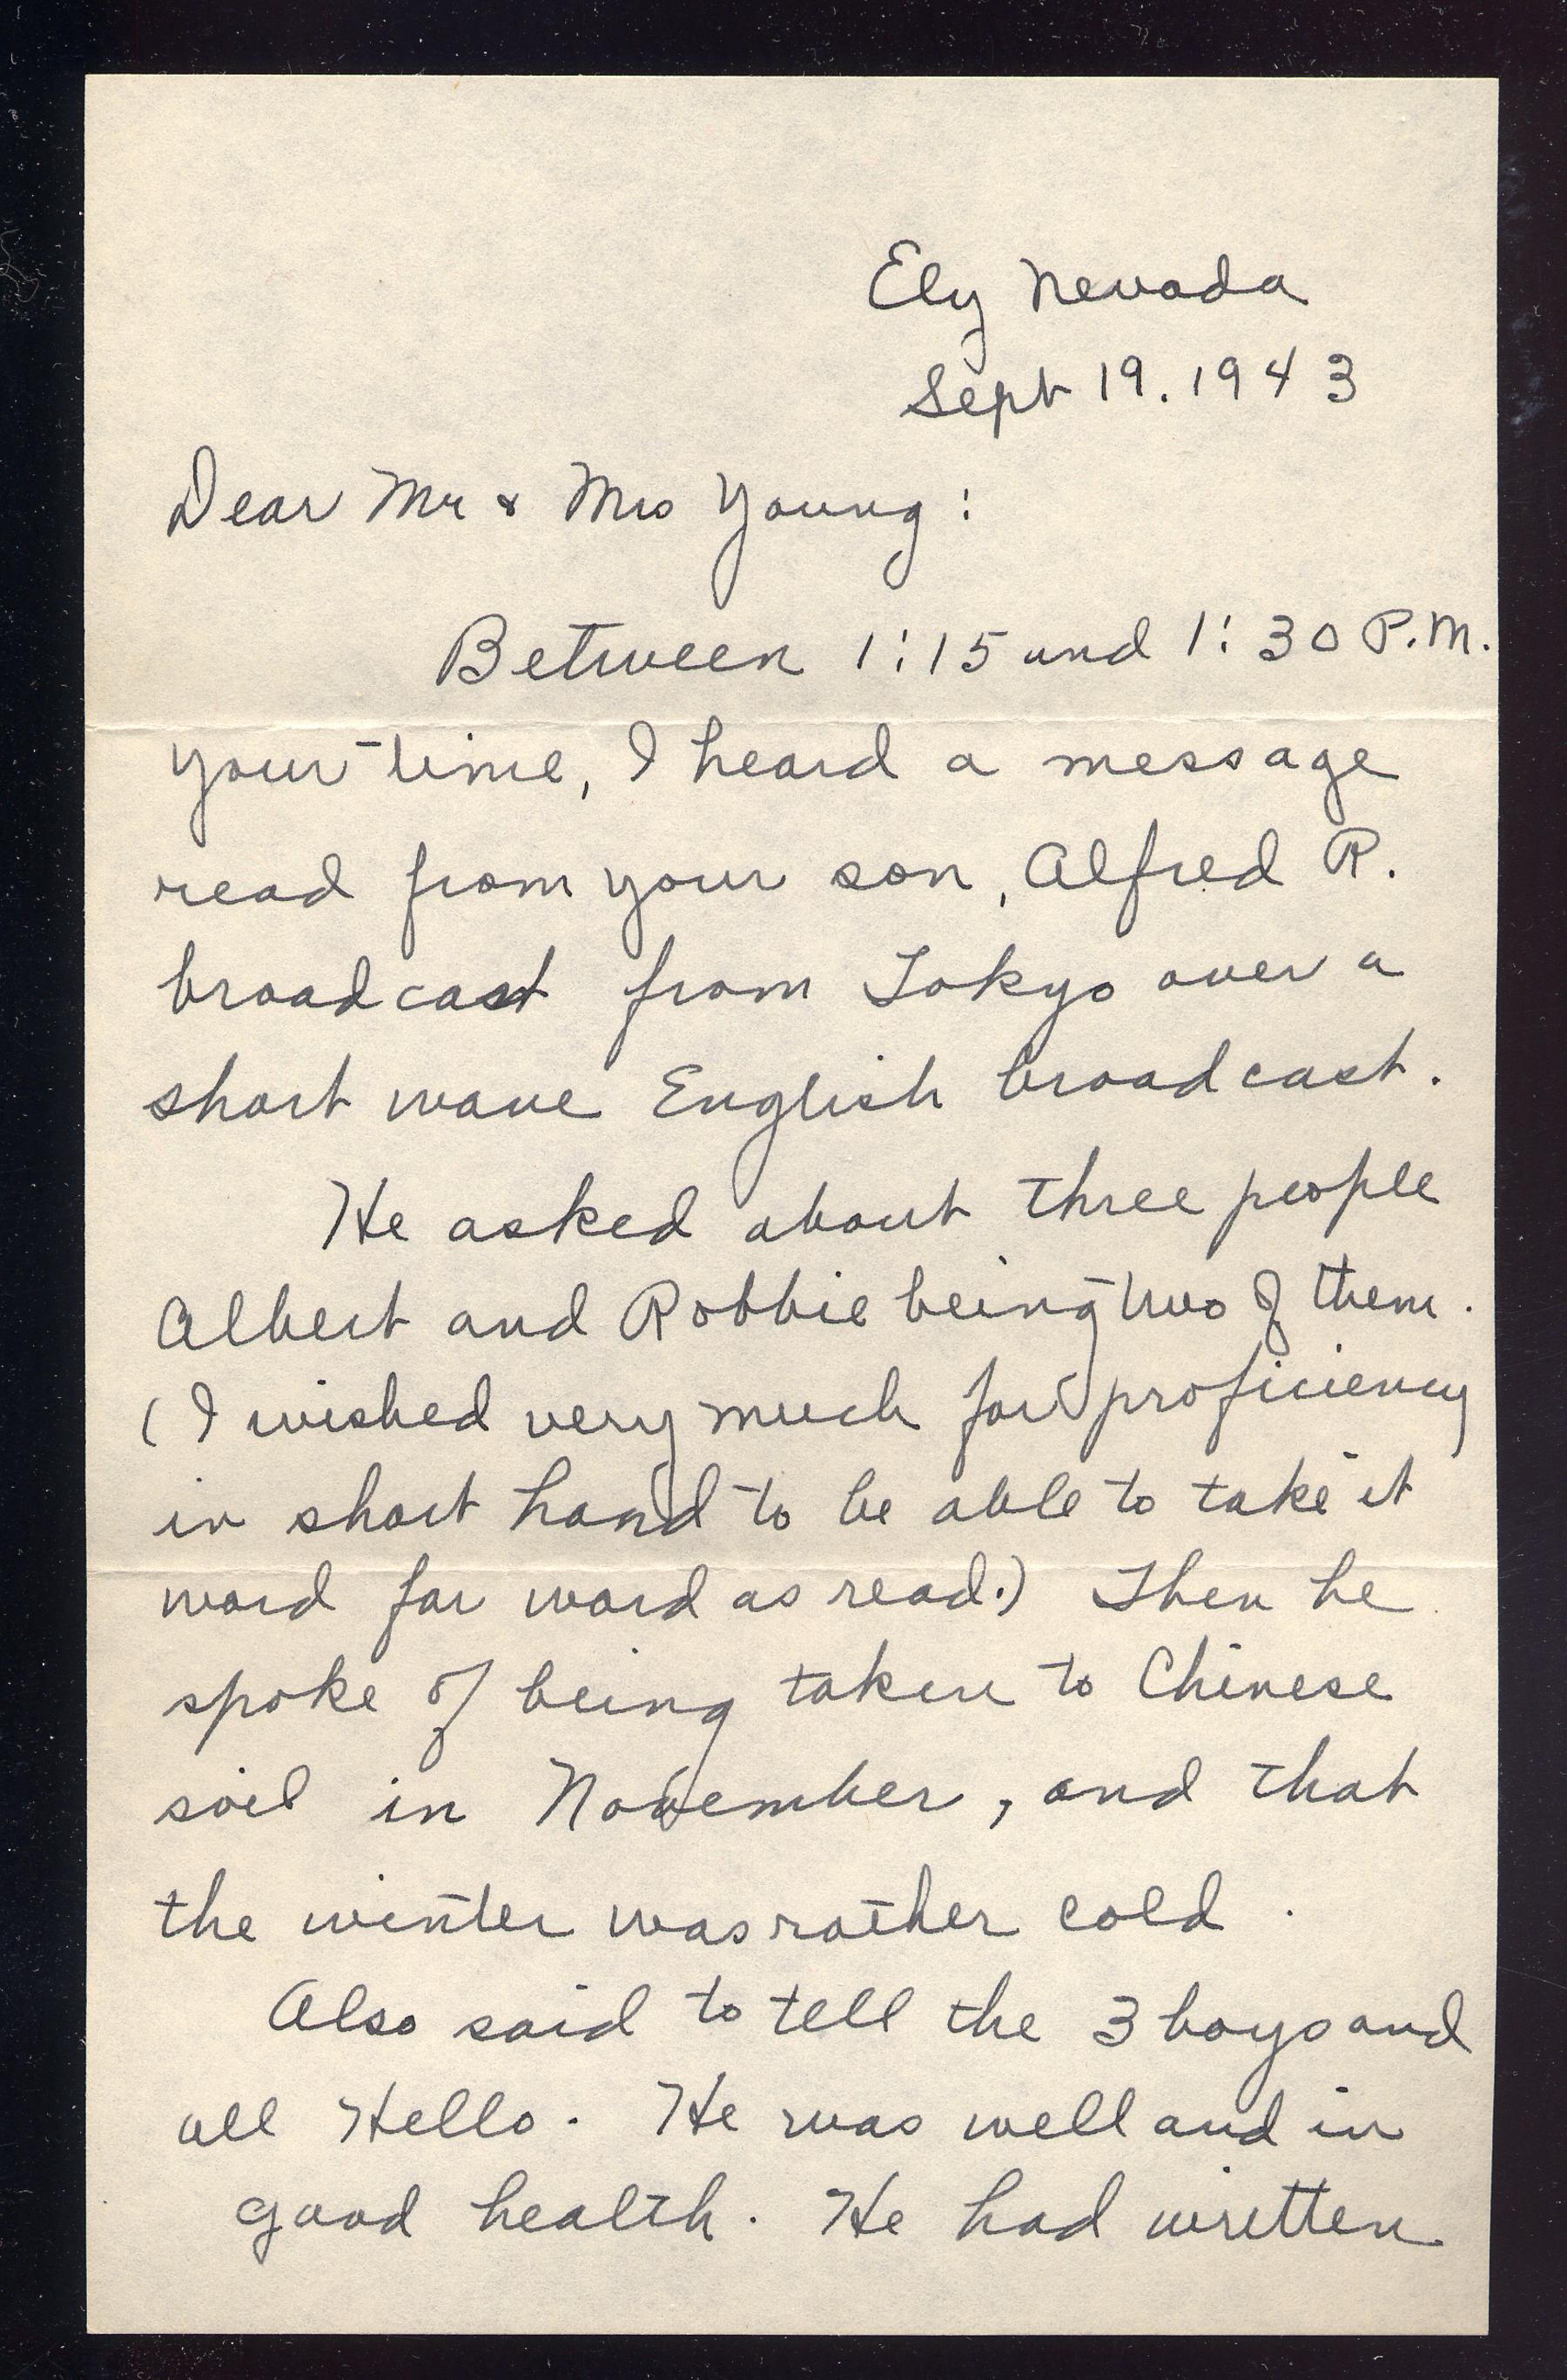 Ely Nevada
Sept 19. 1943
Dear Mr & Mrs Young:
Between 1:15 and 1:30 P.M.
your time, I heard a message
read from your son, Alfred R.
broadcast from Tokyo over a
short wave English broadcast.
He asked about three people
Albert and Robbie being two of them.
(I wished very much for proficiency
in short hand to be able to take it
word for word as read.) Then he
spoke of being taken to Chinese
soil in November, and that
the winter was rather cold.
Also said to tell the 3 boys and
all Hello. He was well and in
good health. He had written